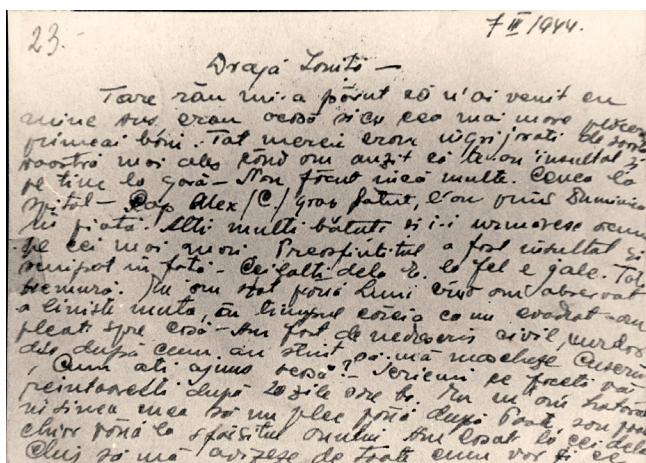 23.-
7 III/1944.
Dragă Ioniță —
Tare rău mi-a părut că n'ai venit cu
mine sus, eram acasă și cu cea mai mare plăcere
primeai bani. Tot mereu eram îngrijorați de soarta
voastră mai ales când am auzit că te-au insultat și
pe tine la gară - N'au făcut încă multe. Cenea la
spital - Pop Alex /C./ grav bătut, l'au prins Duminica
în piață. Alți mulți bătuți și i-i urmăresc acum
pe cei mai mari Preasfințitul a fost insultat și
scuipat în față - Ceilalți dela la fel e gale. Toți
tremură. Eu am stat până Luni când am observat
a liniște mută, în timpul căreia ca un evadat am
plecat spre casă - Am fost de nedescris civil, murdar
după cum au știut să mă mascheze
Cum ați ajuns acasă? - Scrieți ce faceți vă
reîntoarceți după 20 zile Eu m'am hotărât
să nu plec până după Paști, sau poate
chiar până la sfârșitul anului Am lăsat la cei dela
Cluj să mă avizeze de toate cum vor fi ce